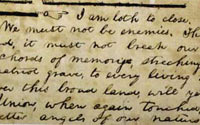 I am loth to close.
We must not be enemies. Th
d, it must not break our
chords of memory, streching
atriot grave, to every living
ver this broad land, will ye
Union, when again touched,
etter angels of our nature